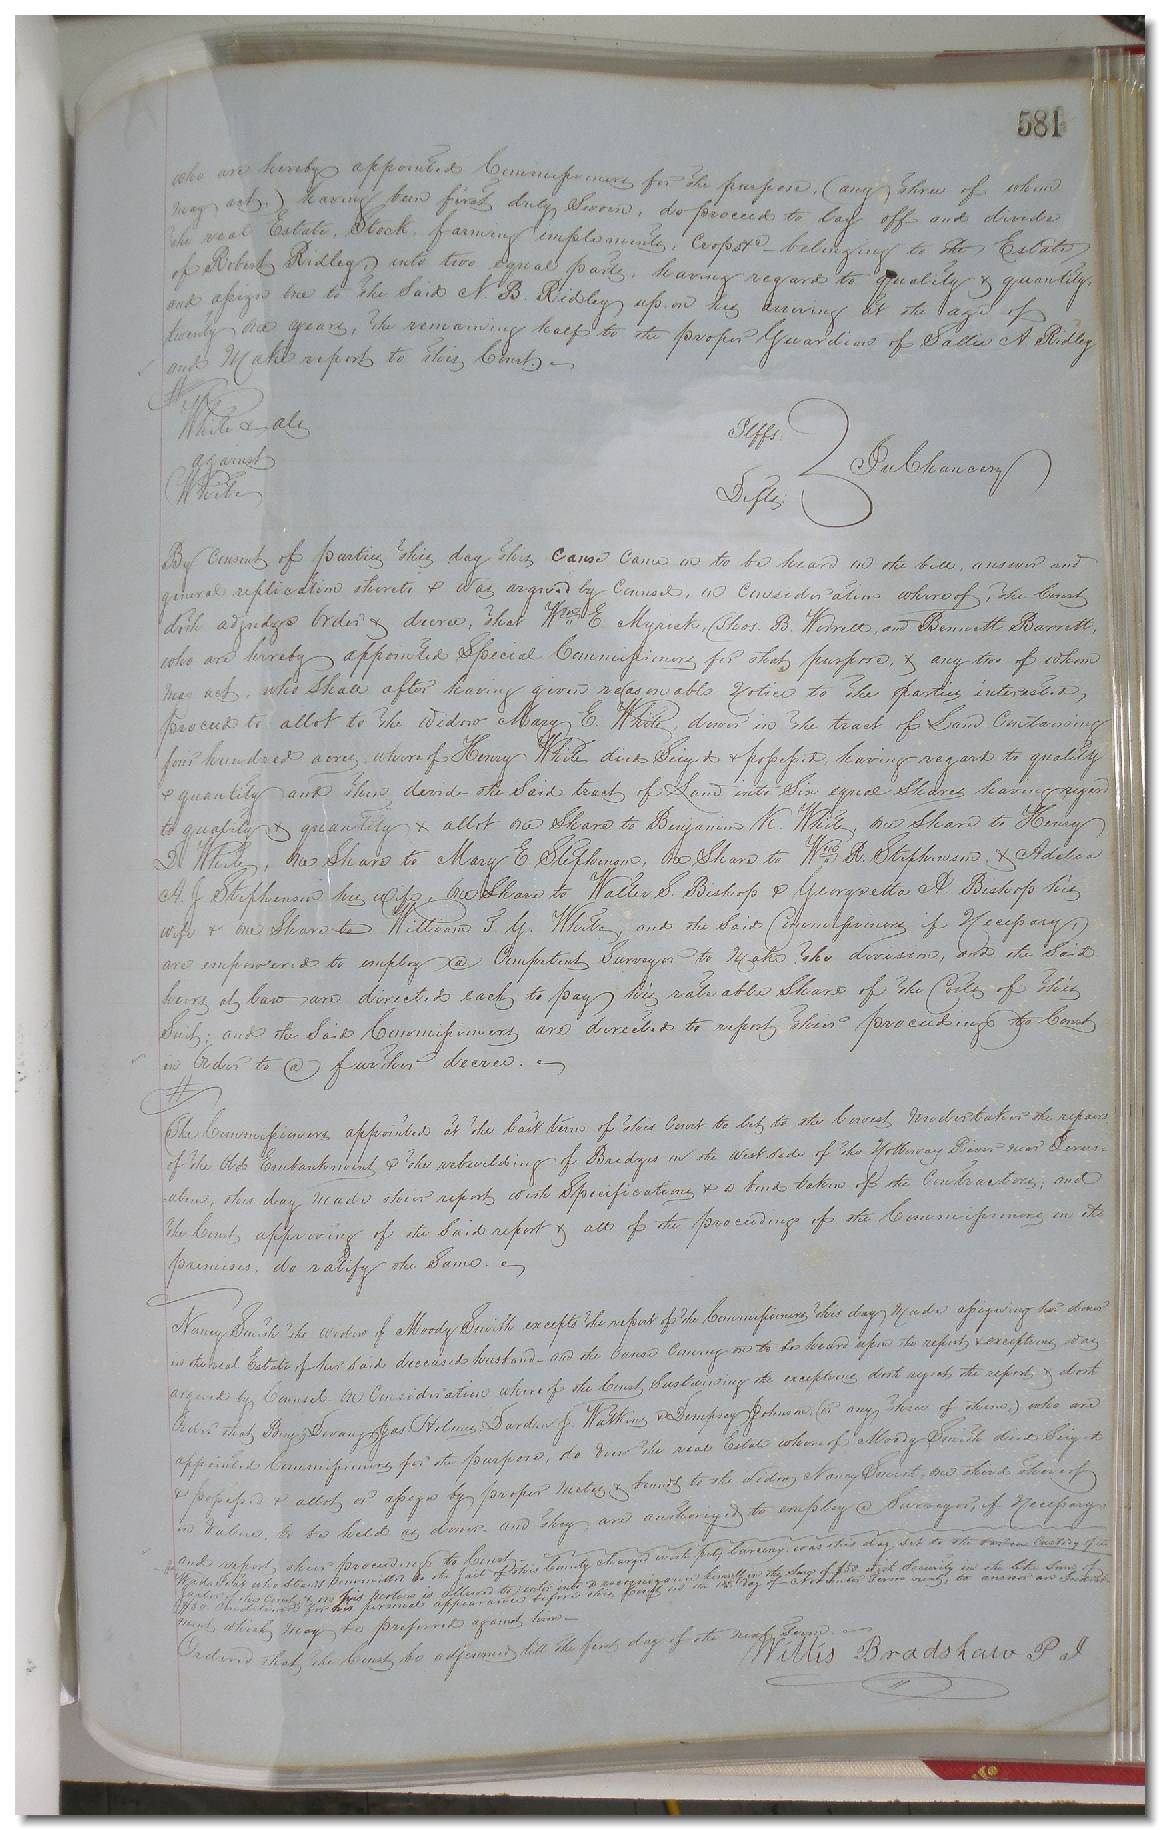 581
who are hereby appointed Commissioners for the purpose, (any three of whom
may act,) having been first duly Sworn, do proceed to lay off and divide
the real Estate, Stock, farming implements, Crops &c belonging to the Estate
of Robert Ridley, into two equal parts, having regard to quality & quantity,
and assign one to the Said N. B. Ridley upon his arriving at the age of
twenty one years, the remaining half to the proper Guardian of Sallie A Ridley
and Make report to this Court.
White & als Plffs.
against In Chancery
White Defts;
By Consent of parties this day this cause came on to be heard on the bill, answer and
general replication thereto & was argued by Counsel, on Consideration whereof, the Court
doth adjudge order & decree, that Wm E. Myrick, Thos. B. Worrell, and Bennett Barrett,
who are hereby appointed Special Commissioners for that purpose, & any two of whom
may act, who Shall after having given reasonable Notice to the parties interested,
proceed to allot to the widow Mary E. White, dower in the tract of Land Containing
four hundred acres, whereof Henry White died Seized & possessed, having regard to quality
& quantity and then devide the Said tract of Land into Six equal Shares having regard
to quality & quantity & allot one Share to Benjamin K. White, one Share to Henry
D. White, one Share to Mary E Stephenson, one Share to Wm R. Stephenson & Adelaa
A. J Stephenson his wife, one Share to Walter S. Bishop & Georgretta A Bishop his
wife & one Share to William T. Y. White, and the Said Commissioners if Necessary,
are empowered to employ a Competent Surveyor to Make the division, and the Said
heirs at law are directed each to pay his rateable Share of the Costs of this
Suit; and the Said Commissioners are directed to report their proceedings to Court
in Order to a further decree.
The Commissioners appointed at the last term of this Court to let to the lowest undertaker the repairs
of the Old Embankment & the rebuilding of Bridges on the west side of the Nottoway River near Jerus-
-alem, this day Made their report with Specifications & a bond taken of the Contractors; and
the Court approving of the Said report & all of the proceedings of the Commissioners in the
premises, do ratify the Same.
Nancy Smith the widow of Moody Smith excepts the report of the Commissioners this day Made assigning her dower
in the real Estate of her Said deceased husband and the Cause Coming on to be heard upon the report & exceptions was
argued by Counsel On Consideration whereof the Court Sustaining the exceptions doth reject the report & doth
Order that Benj. Devany, Jas. Holmes, Jordan J. Watkins & Dempsey Johnson, (or any three of them,) who are
appointed Commissioners for the purpose, do view the real Estate whereof Moody Smith died Seized
& possessed & allot or assign by proper metes & bounds to the widow Nancy Smith, one third thereof
in Value, to be held as dower and they are authorized to employ a Surveyor, if Necessary
and report their proceedings to Court
who Stands Committed to the Jail of this County charged with larceny was this day Set to the
of this Court & on his motion is allowed to enter into a recognizance himself in the Sum of $50 with Security in the like Sum of
$50 Conditioned for his personal appearance before this Court on the 1st day of November Term next, to answer an Indict-
ment which May be preferred against him
Ordered that the Court be adjourned till the first day of the next Term.
Willis Bradshaw P J